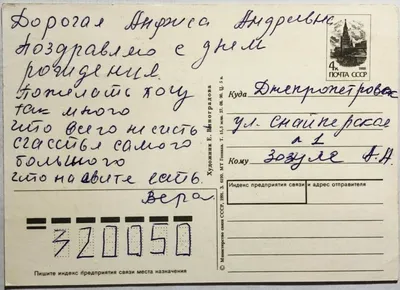 Дорогая Анфиса Андревна
Поздравляю с днем
рождения.
Пожелать хочу
так много
что всего не
счастья самого
большого
что на свите есть.
Вера
320050
Пишите индекс предприятия связи места назначения
Художник Е. Виноградова
© Министерство связи СССР.
МТ Гознака.
4к
ПОЧТА СССР
Куда Днепропетровск
ул. Снайперское
Кому Зозуле А.А.
Индекс предприятия связи и адрес отправителя